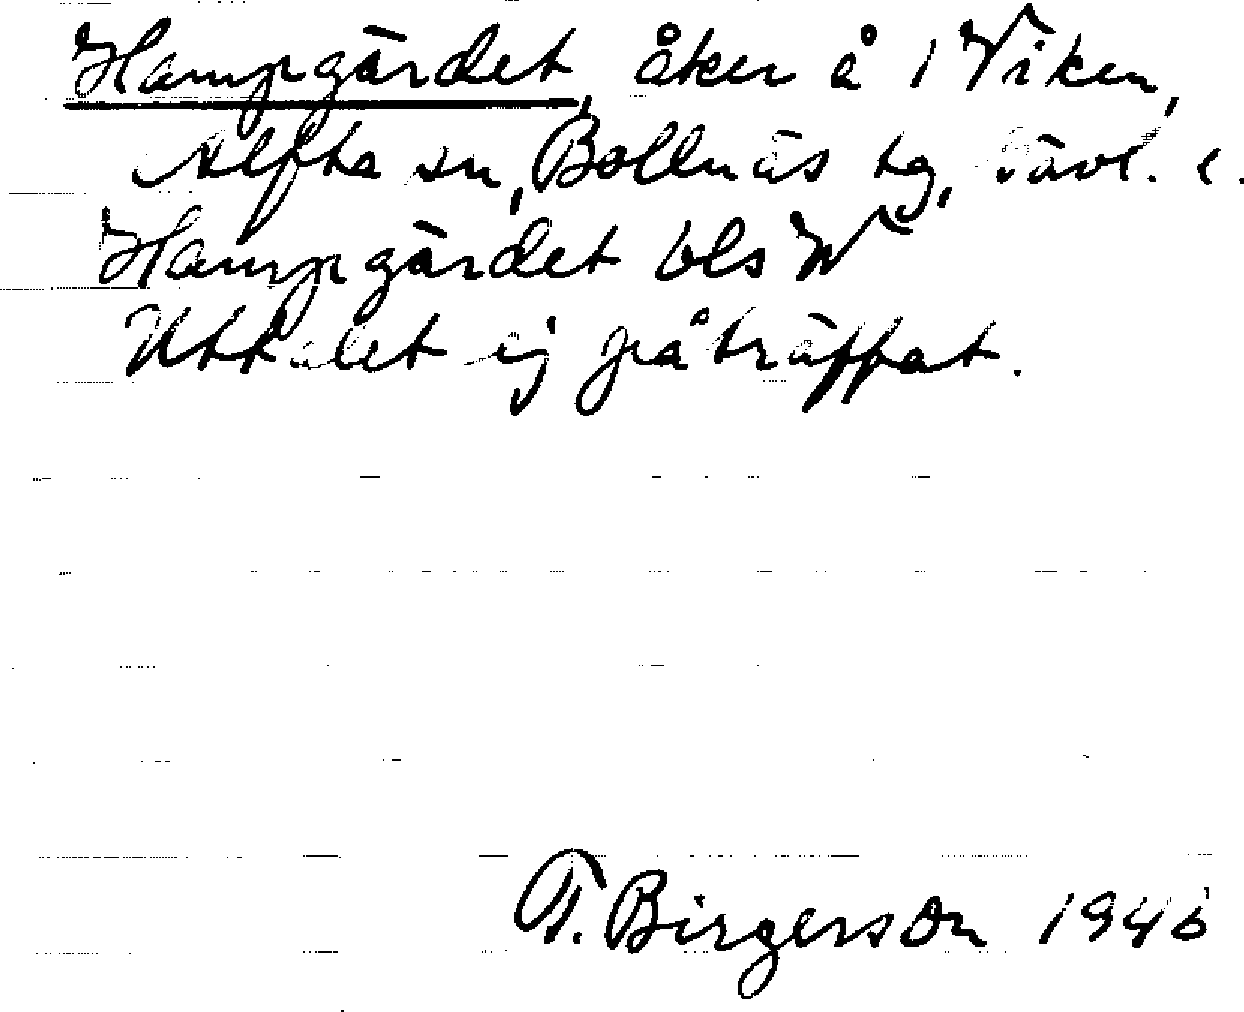 Hampgärdet, åker å 1 Viken,
Alfta sn, Bollnäs tg, Gävl. l.
Hampgärdet bls W
Uttalet ej påträffat.
F. Birgerson 1946